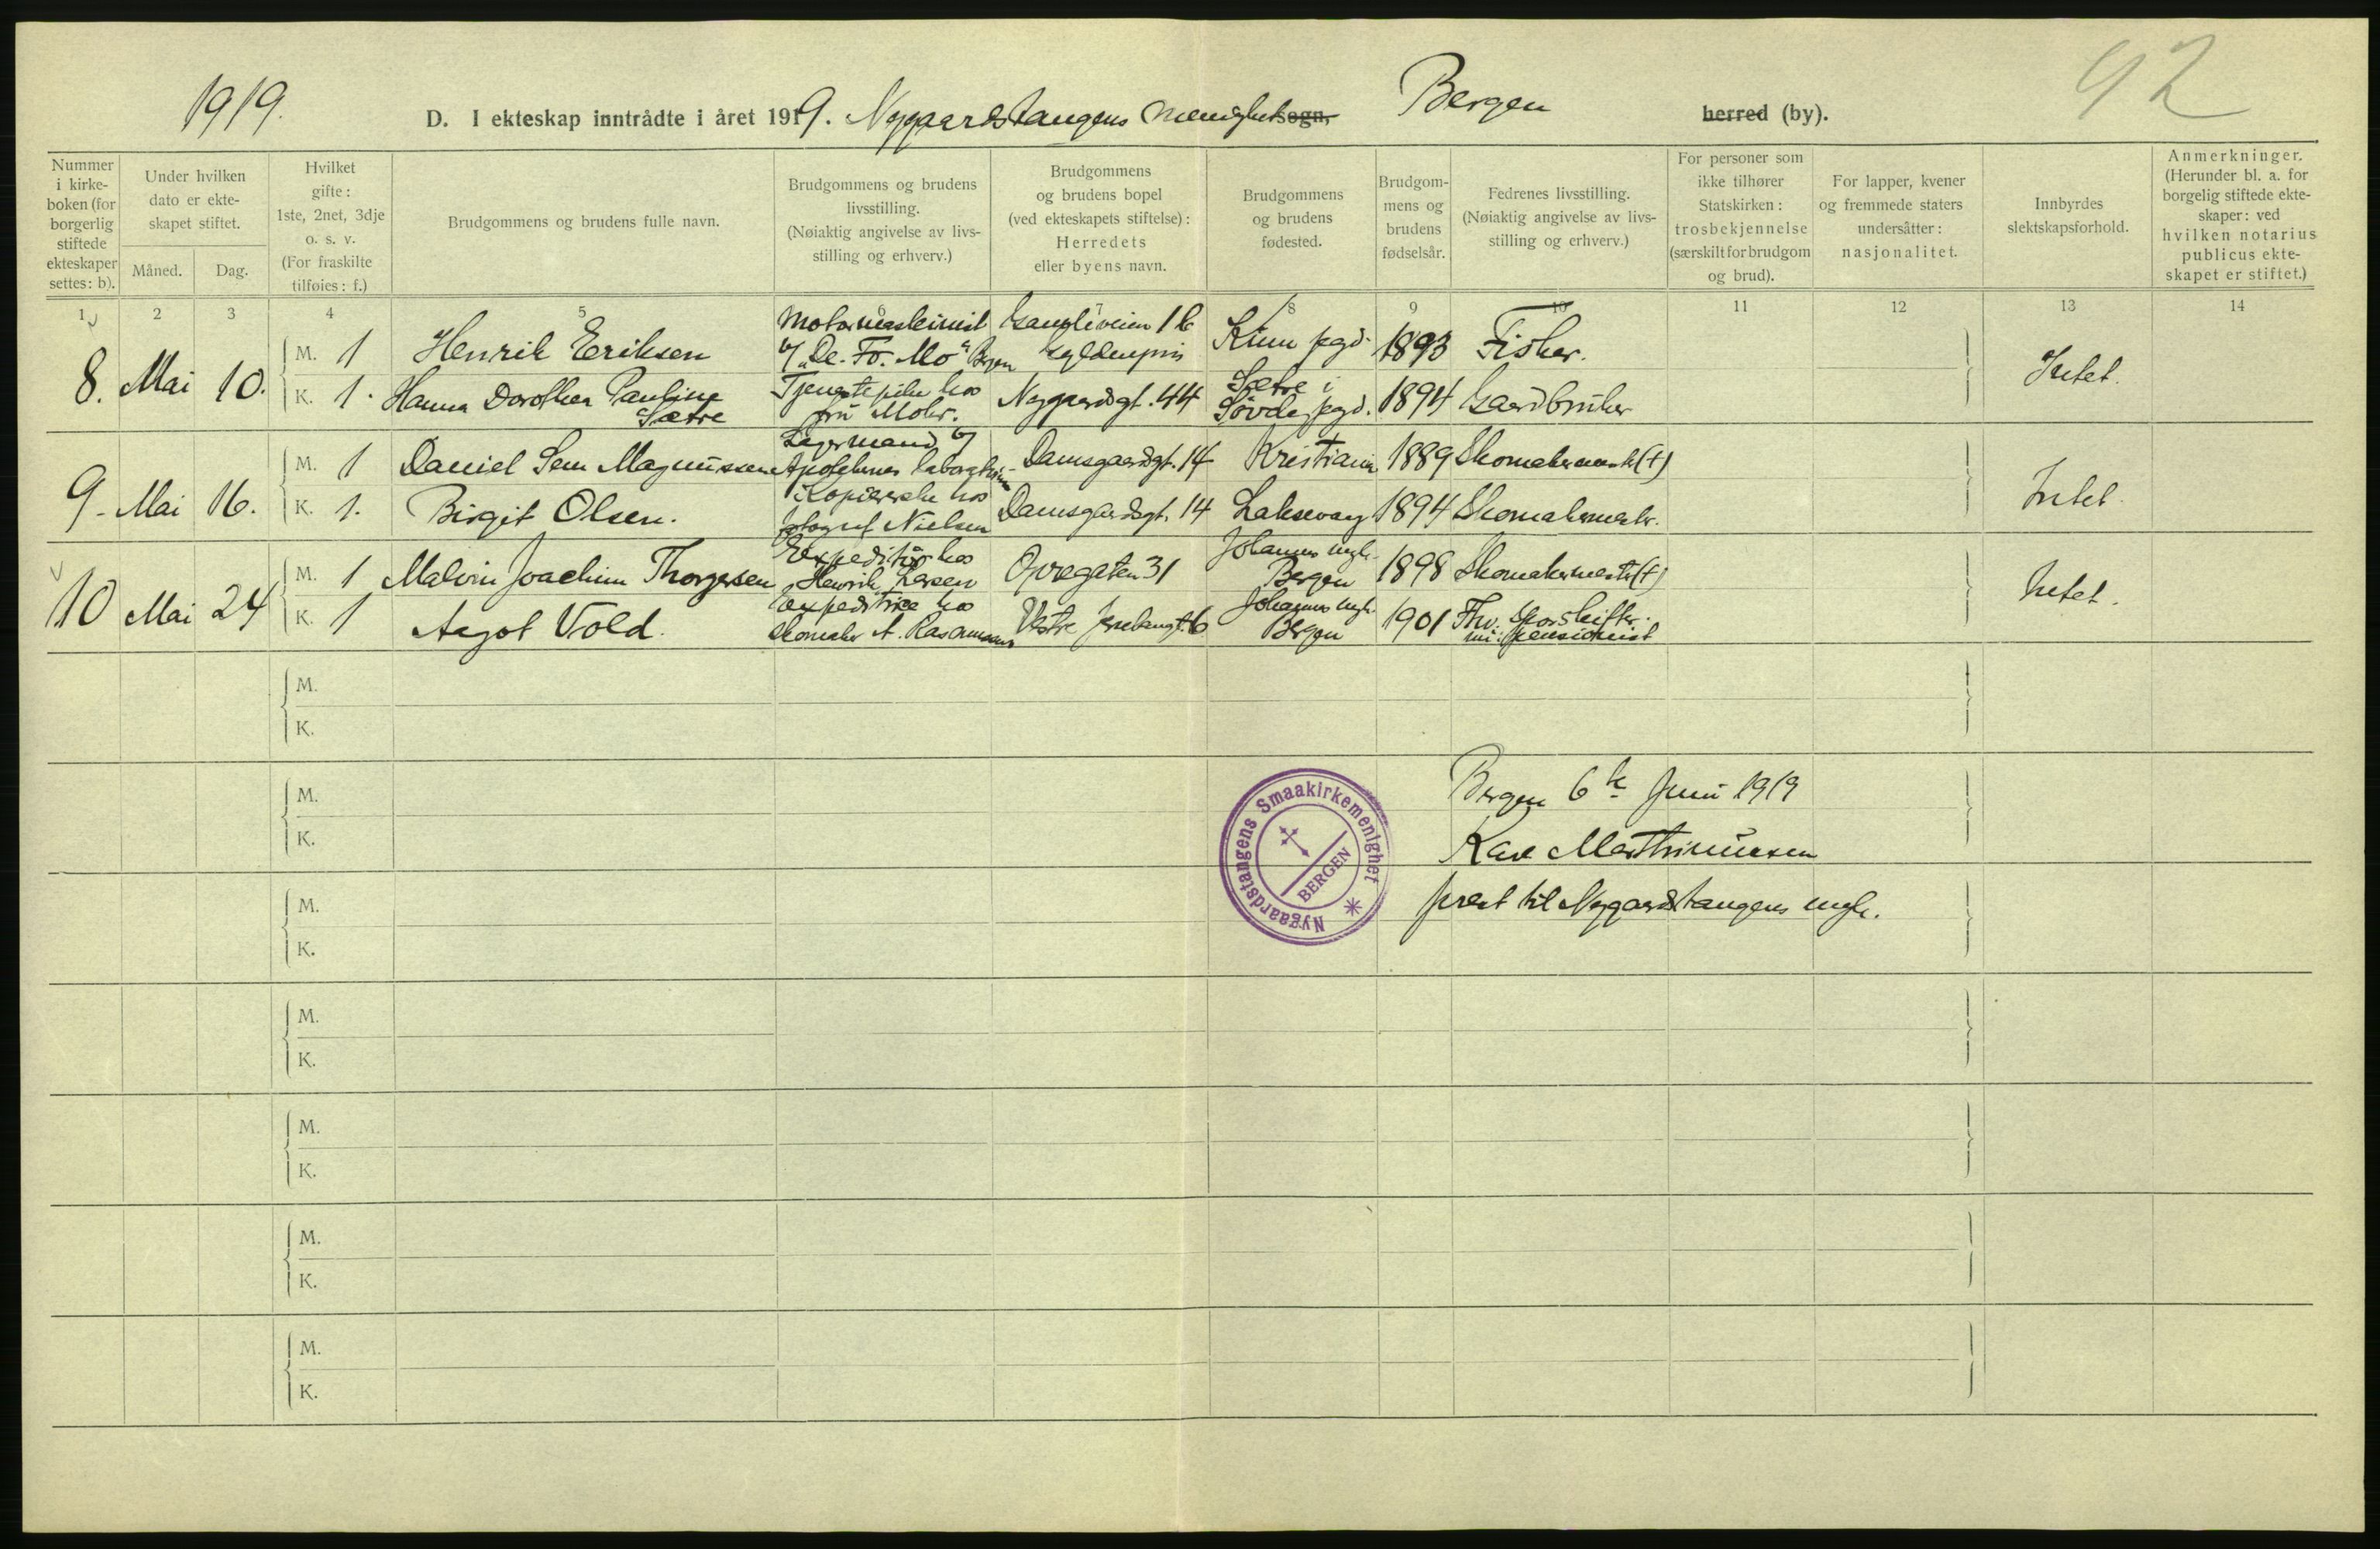 1919.
D. I ekteskap inntrådte i året 1919. Nygaardstangens menighet sogn, Bergen herred (by).
92
Nummer i kirke-boken (for borgerlig stiftede ekteskaper settes: b).
Under hvilken dato er ekte-skapet stiftet.
Måned.
Dag.
Hvilket gifte: 1ste, 2net, 3dje o. s. v. (For fraskilte tilføies: f.)
Brudgommens og brudens fulle navn.
Brudgommens og brudens livsstilling. (Nøiaktig angivelse av livs-stilling og erhverv.)
Brudgommens og brudens bopel (ved ekteskapets stiftelse): Herredets eller byens navn.
Brudgommens og brudens fødested.
Brudgom-mens og brudens fødselsår.
Fedrenes livsstilling. (Nøiaktig angivelse av livs-stilling og erhverv.)
For personer som ikke tilhører Statskirken: trosbekjennelse (særskilt for brudgom og brud).
For lapper, kvener og fremmede staters undersåtter: nasjonalitet.
Innbyrdes slektskapsforhold.
Anmerkninger. (Herunder bl. a. for borgelig stiftede ekte-skaper: ved hvilken notarius publicus ekte-skapet er stiftet.)
1 2 3 4 5 6 7 8 9 10 11 12 13 14
8. Mai 10.
M. 1 Henrik Eriksen Motormaskinist "De. Fo. Mo" Bergen 1b Gyldenpris Kinn pgd. 1893 Fisker. Intet.
K. 1. Hanna Dorothea Pauline Sætre Tjenestepike hos fru Mohr. Nygaardsgt. 44 Sætre i Søvde pgd. 1894 Gaardbruker
9. Mai 16.
M. 1 Daniel Sem Magnussen Lagermand Apothekernes laboratorium Damsgaardsgt. 14 Kristiania 1889 Skomakermest. (†) Intet
K. 1. Birgit Olsen. Kopiererske hos fotograf Nielsen Damsgardsgt. 14 Laksevaag 1894 Skomakermestr.
10 Mai 24
M. 1 Malvin Joachim Thorgersen Expeditør hos Henrik Larsen Øvregaten 31 Johannes mgh. Bergen 1898 Skomakermester (†) Intet.
K. 1 Aagot Vold. Expeditrice hos skomaker A. Rasmussen Vestre 6 Johannes mgh. Bergen 1901 Fhv. sporskifter. nu: pensionist
M.
K.
M.
K.
Bergen 6te Juni 1919
Karl Marthinussen
prest til Nygaardstangens mgh.
Nygaardstangens Smaakirkemenighet
BERGEN
M.
K.
M.
K.
M.
K.
M.
K.
M.
K.